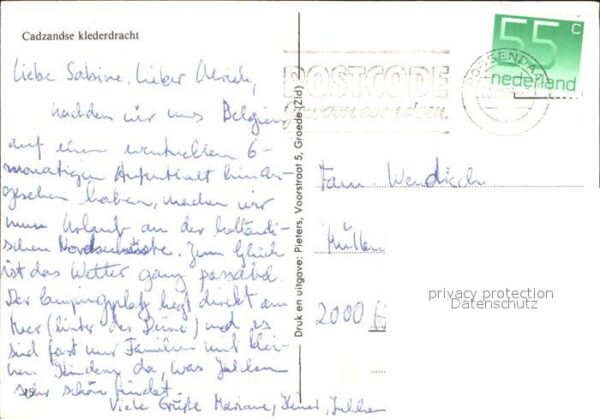 Cadzandse klederdracht
Liebe Sabine, lieber Ulrich,
nachdem wir uns Belgien
auf einen eventuellen 6-
monatigen Aufenthalt hin an-
gesehen haben, machen wir
nun Urlaub an der holländi-
schen Nordseeküste. Zum Glück
ist das Wetter ganz passabel.
Der Campingplatz liegt direkt am
Meer (hinter der Düne) und es
sind fast nur Familien mit klei-
nen Kindern da, was
sehr schön findet.
Viele Grüße
Druk en uitgave: Pieters, Voorstraat 5, Groede (Zld)
POSTCODE
gewoon even doen
ROOSENDAAL
55 c
nederland
Fam. Wendisch
2000
privacy protection
Datenschutz